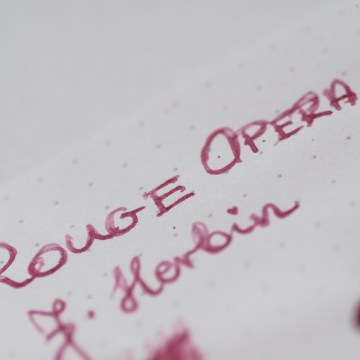 Rouge Opera
J. Herbin